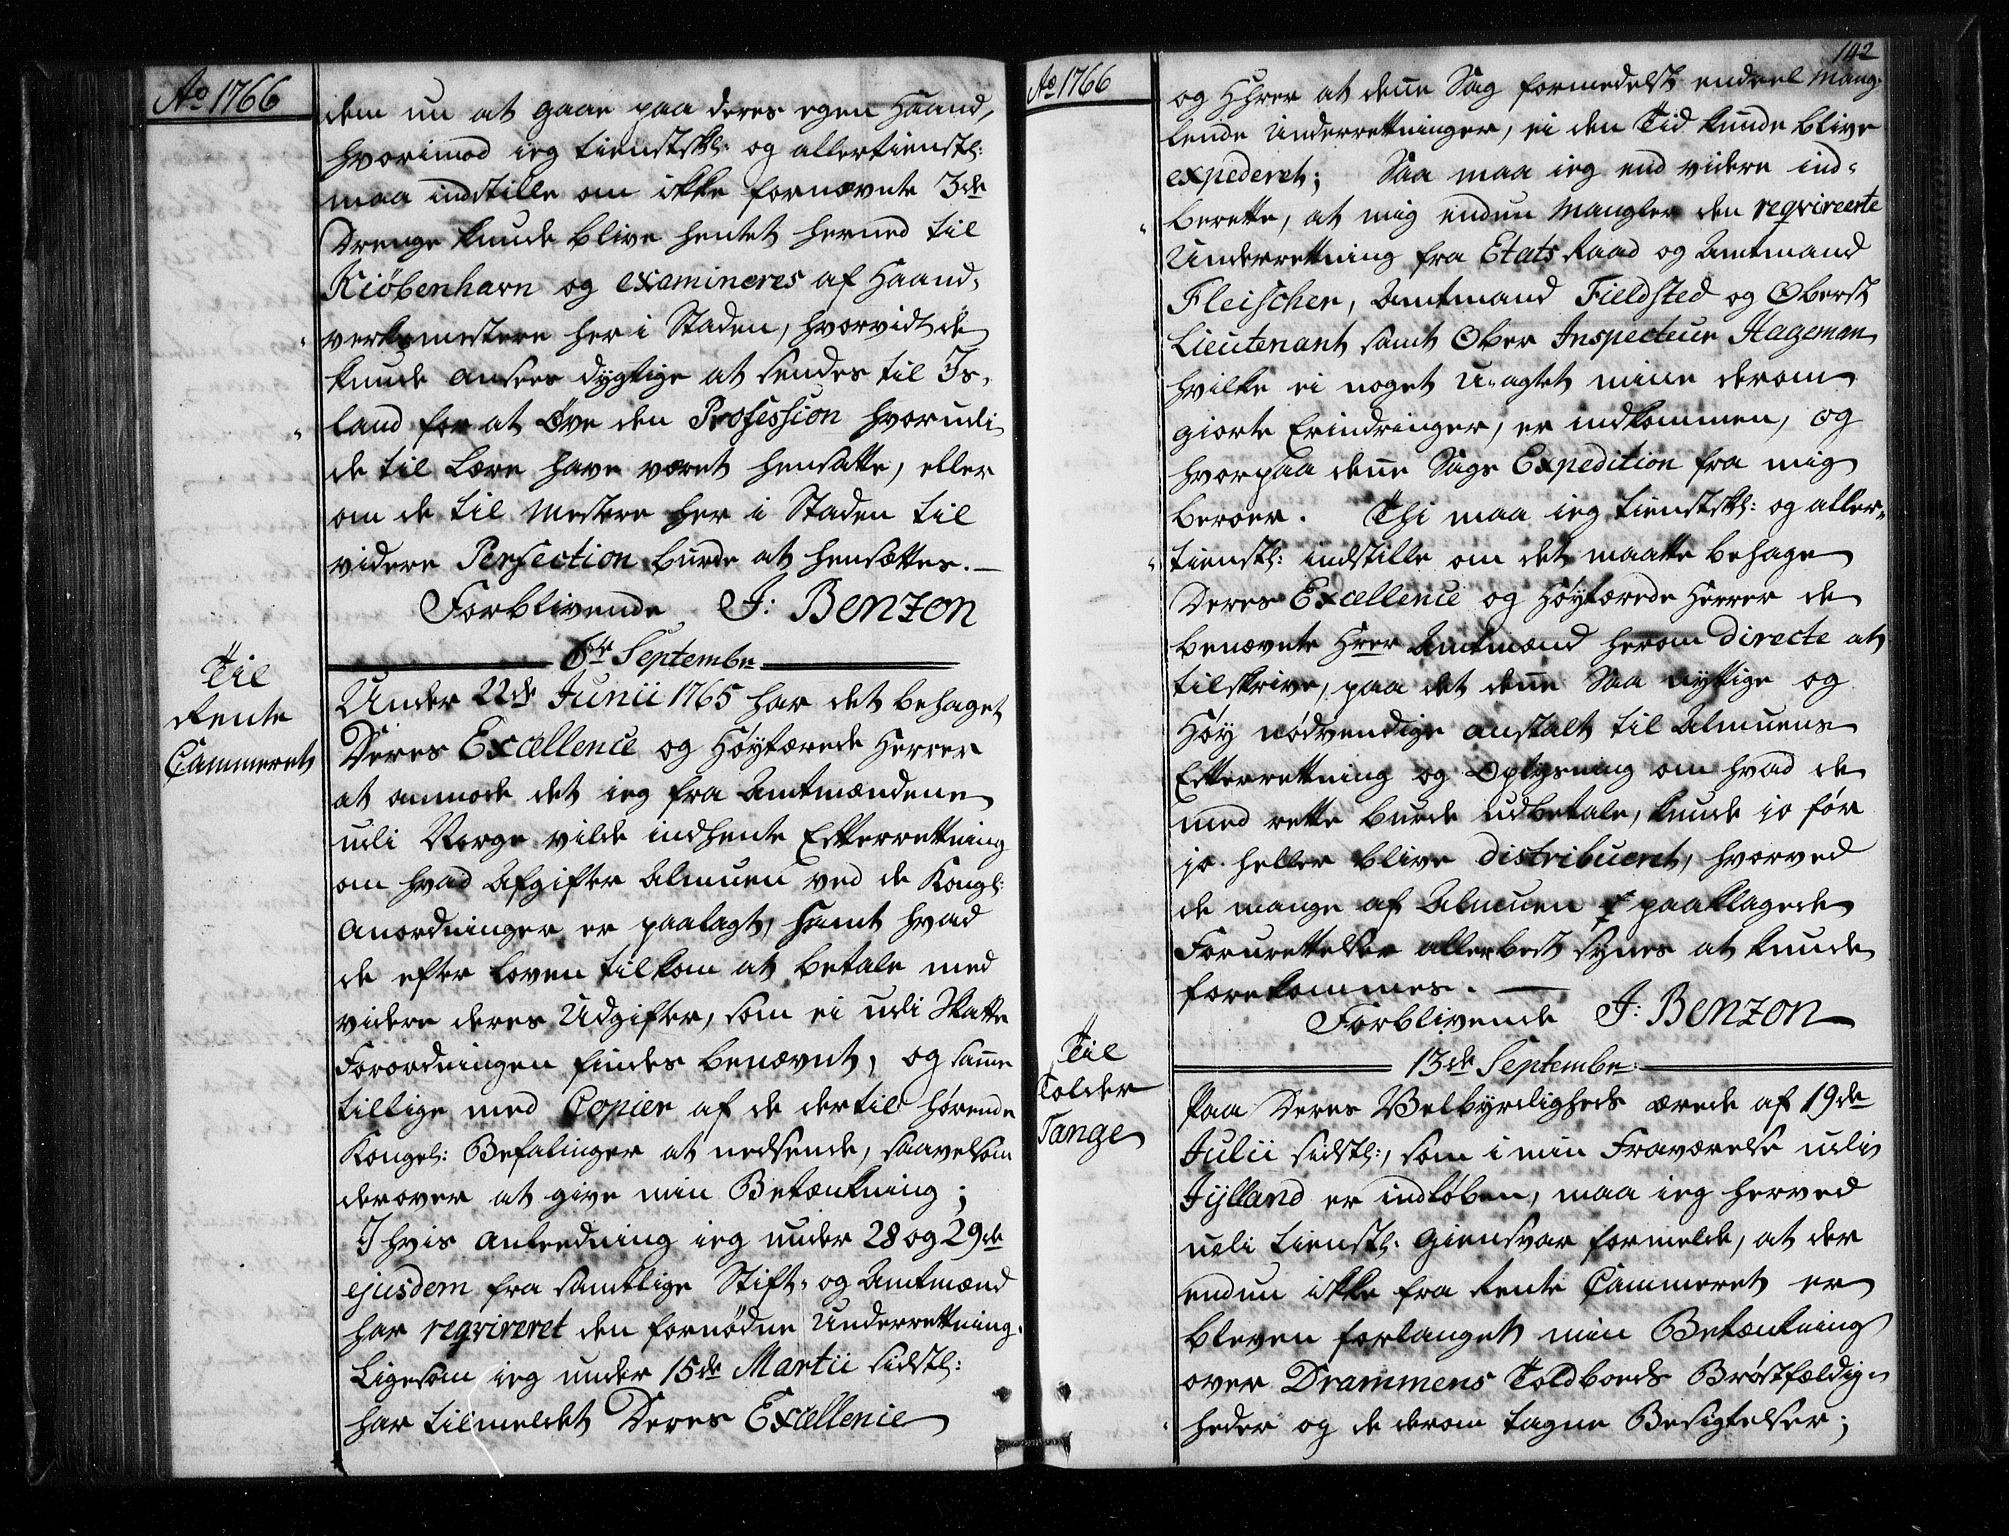 Ao 1766
dem nu at gaae paa deres egen Haand,
hvorimod ieg tienstskl: og allertienstl:
maa indstille om ikke fornævnte 3de
Drenge kunde blive hentet herned til
Kiöbenhavn og examineres af Haand-
verksmestere her i Staden, hvorvidt de
kunde ansees dygtige at sendes til Is-
land for at Øve den Profession hvorudi
de til Lære have været hensatte, eller
om de til Mestere her i Staden til
videre Perfection burde at hensættes.
Forblivende J: Benzon
6te Septembr
Til
Rente
Cammeret
Under 22de Junii 1765 har det behaget
Deres Excellence og Høytærede Herrer
at anmode det ieg fra Amtmændene
udi Norge vilde indhente Efterrettning
om hvad Afgifter Almuen ved de Kongl:
Anordninger er paalagt, samt hvad
de efter Loven tilkom at betale med
videre deres Udgifter, som ei udi Skatte
Forordningen findes benævnt, og samme
tillige med Copier af de dertil hørende
Kongel: Befalinger at nedsende, saavelsom
derover at give min Betænkning;
I hvis Anledning ieg under 28 og 29de
ejusdem fra samtlige Stift- og Amtmænd
har reqvireret den fornødne Underrettning.
Ligesom ieg under 15de Martii sidstl:
har tilmeldet Deres Excellence
Ao 1766
142
og HHrer at denne Sag formedelst endeel Mang-
lende Underrettninger, ei den Tid kunde blive
expederet; Saa maa ieg end videre ind-
berette, at mig endnu Mangler den reqvireerte
Underrettning fra Etats Raad og Amtmand
Fleischer, Amtmand Fieldsted og Oberst
Lieutenant samt Ober Inspecteur Hageman
hvilke ei noget u-agtet mine derom
giorte Erindringer, er indkommen, og
hvorpaa denne Sags Expedition fra mig
beroer. Thi maa ieg tienstskl: og aller-
tienstl: indstille om det maatte behage
Deres Excellence og Høytærede Herrer de
benævnte Hrer Amtmænd herom directe at
tilskrive, paa det denne saa nyttige og
Høy nödvendige anstalt til Almuens
Efterrettning og Oplysning om hvad de
med rette burde udbetale, kunde jo før
jo heller blive distribueret, hvorved
de mange af Almuen paaklagede
Forurettelser allerbest synes at kunde
forekommes.
Forblivende J: Benzon
13de Septembr:
Til
Tolder
Tange
Paa Deres Velbyrdigheds ærede af 19de
Julii sidstl:, som i min Fraværelse udi
Jylland er indløben, maa ieg herved
udi tienstl: Giensvar formelde, at der
endnu ikke fra Rente Cammeret er
bleven forlanget min Betænkning
over Drammens Toldboeds Brøstfældig-
heder og de derom tagne Besigtelser;